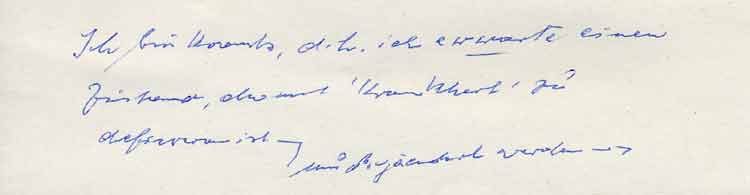 Ich bin krank, d.h. ich erwarte einen
Zustand, der mit 'Krankheit' zu
definieren ist
muß geändert werden